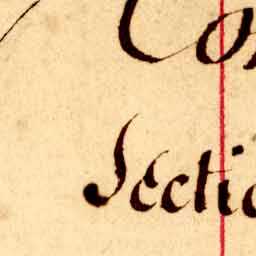 Con
Sectio